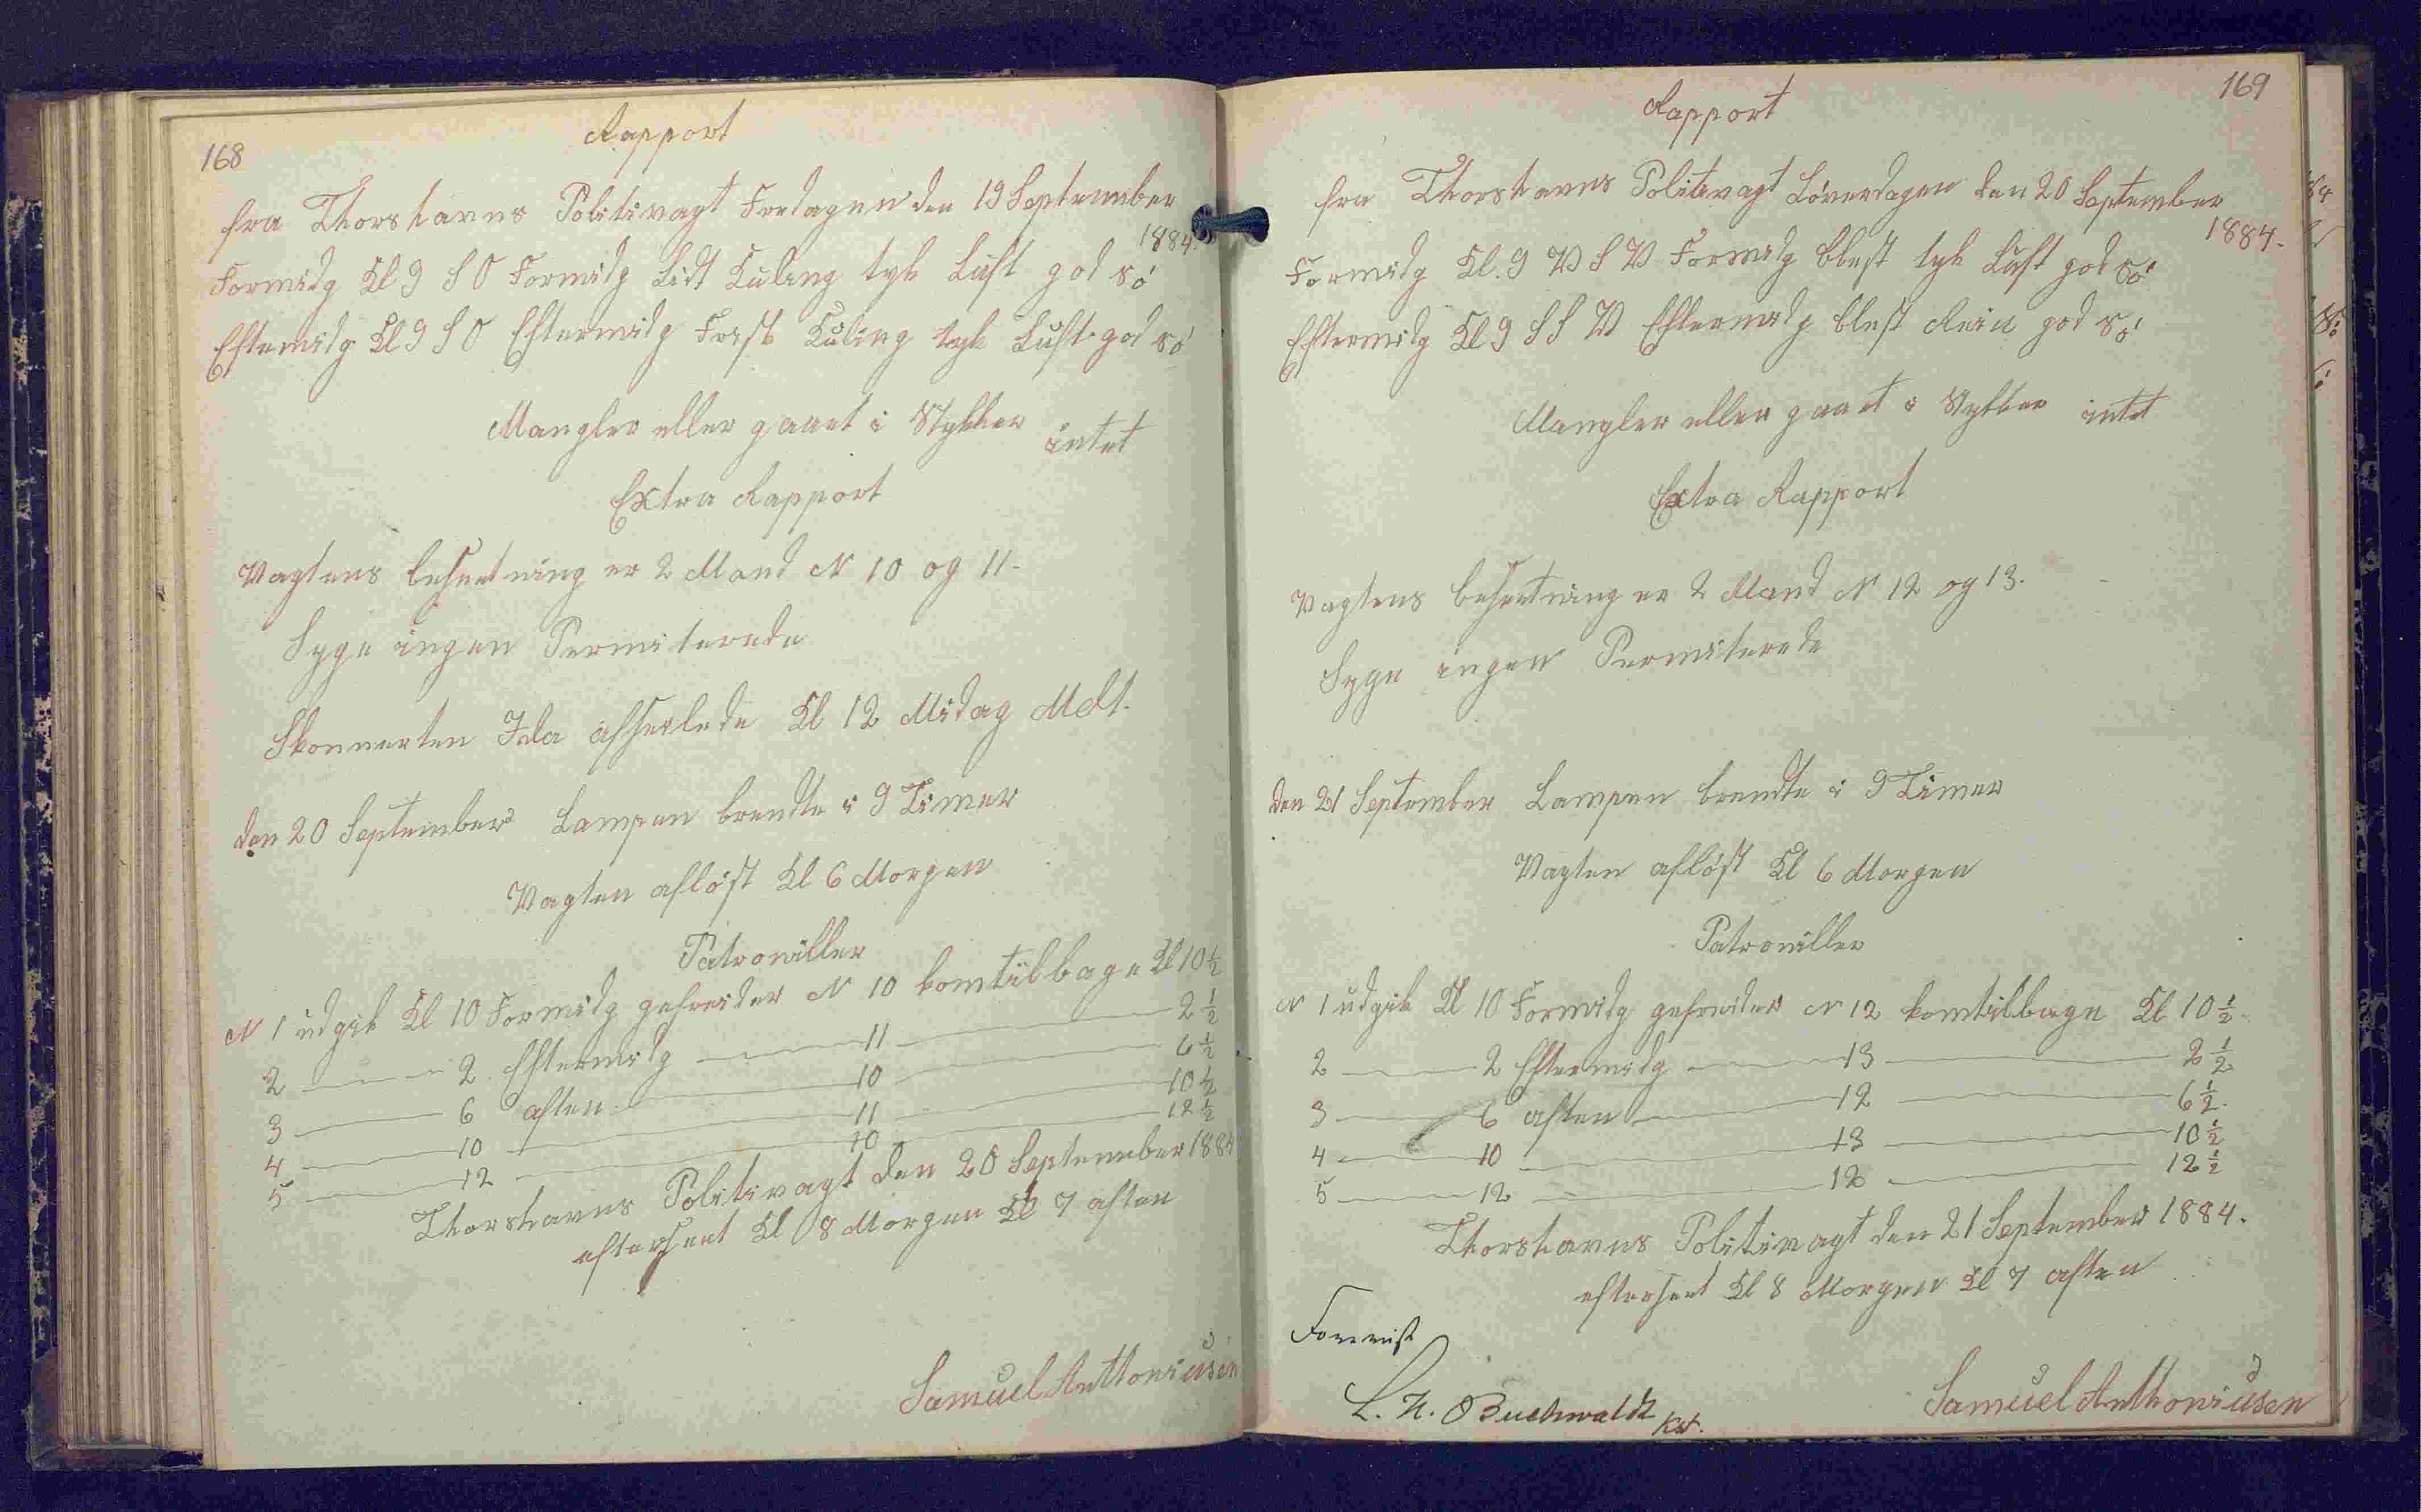 168
Rapport
fra Thorshavns Politivagt Fredagen den 19 September
1884.
Formidg Kl 9 S O Formidg Lidt Kuling tyk Luft god Sö
Eftermidg Kl 9 S O Eftermidg Frisk Kuling tyk Luft god Sö
Mangler eller gaaet i Stykker intet
Extra Rapport
Vagtens besætning er 2 Mand N 10 og 11-
Syge ingen Permiterede
Skonnerten Ida afseilede Kl 12 Midag
den 20 September Lampen brendte i 9 Timer
Vagten aflöst Kl 6 Morgen
Patrouiller
N 1 udgik Kl 10 Formidg gefreider N 10 kom tilbage Kl 10 ½
2 — 2 Eftermidg — 11 — 2 ½
3 — 6 aften — 10 — 6 ½
4 — 10 — 11 — 10 ½
5 — 12 — 10 — 12 ½
Thorshavns Politivagt den 20 September 1884
efterseet Kl 8 Morgen Kl 7 aften
Samuel Anthoniusen
169
Rapport
fra Thorshavns Politivagt Löverdagen den 20 September
1884.
Formidg Kl. 9 V S V Formidg blest tyk Luft god Sö
Eftermidg Kl 9 S S V Eftermidg blest Rein god Sö
Mangler eller gaaet i Stykker intet
Extra Rapport
Vagtens besætning er 2 Mand N 12 og 13.
Syge ingen Permiterede
den 21 September Lampen brendte i 9 Timer
Vagten aflöst Kl 6 Morgen
Patrouiller
N 1 udgik Kl 10 Formidg gefreider N 12 kom tilbage Kl 10 ½
2 — 2 Eftermidg — 13 — 2 ½
3 — 6 aften — 12 — 6 ½
4 — 10 — 13 — 10 ½
5 — 12 — 12 — 12 ½
Thorshavns Politivagt den 21 September 1884.
efterseet Kl 8 Morgen Kl 7 aften
Forevist
L. H. Buchwaldt
Kst.
Samuel Anthoniusen